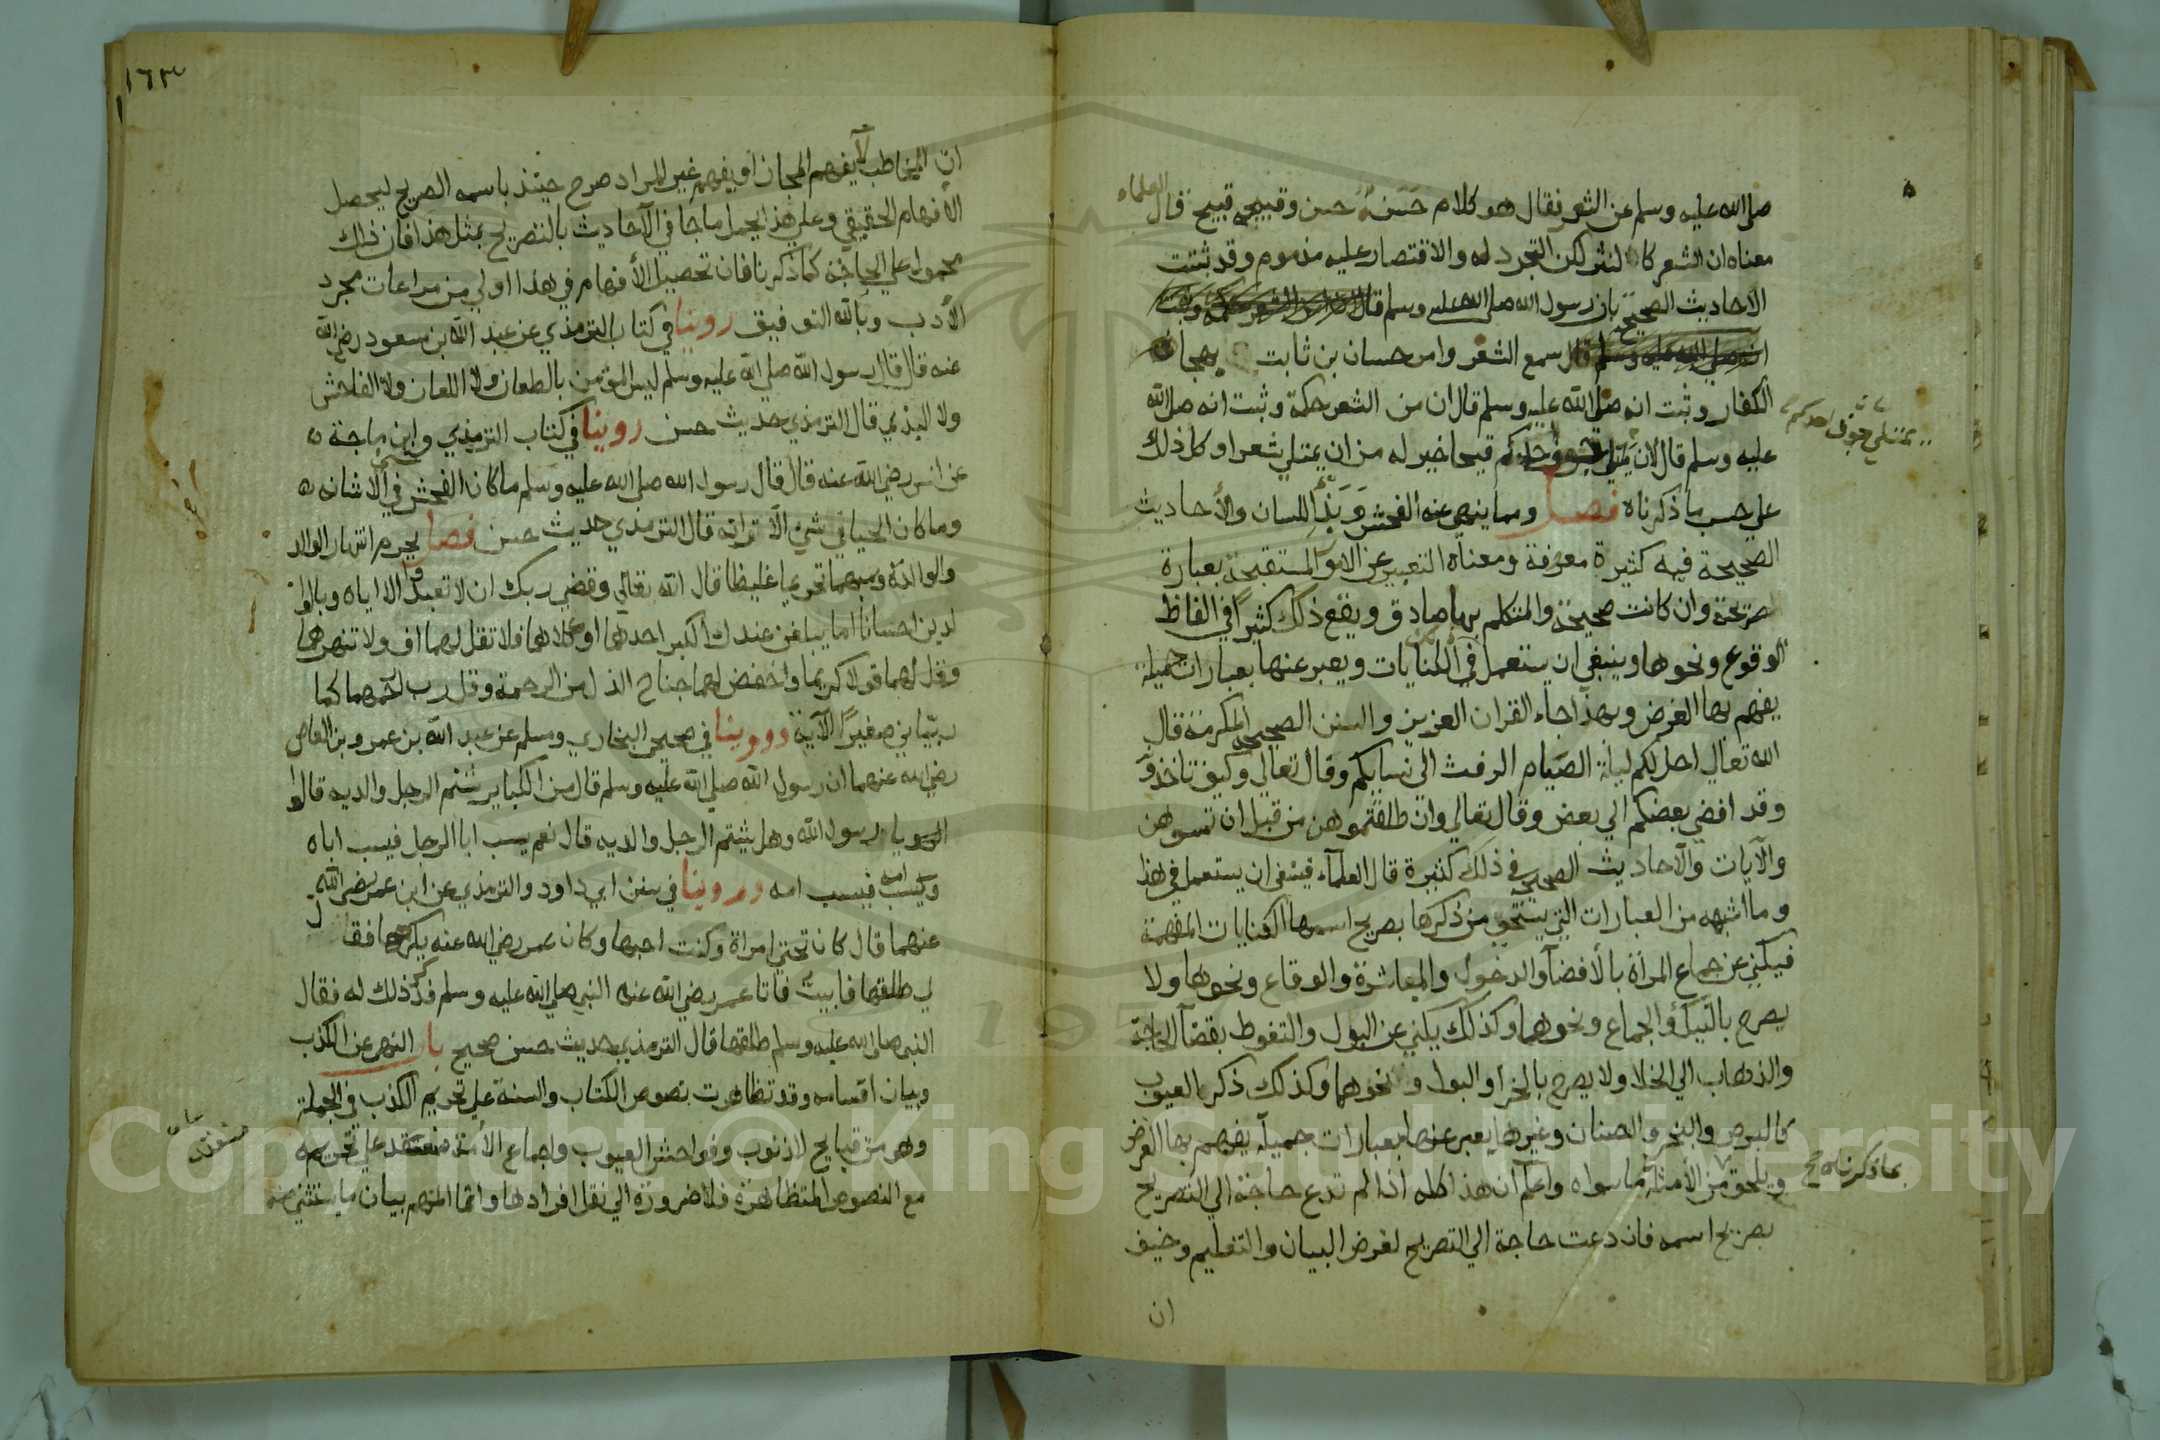 صلى الله عليه وسلم عن الشعر فقال هو كلام حسنه حسن وقبيحه قبيح قال العلماء
معناه ان الشعر كالنثر لكن التجرد له والاقتصار عليه مذموم وقد ثبتت
الاحاديث الصحيحة بان رسول الله صلى الله عليه وسلم
سمع الشعر وامر حسان بن ثابت بهجاء
الكفار وثبت انه صلى الله عليه وسلم قال ان من الشعر حكمة وثبت انه صلى الله
عليه وسلم قال لان يمتلي جوف احدكم قيحا خير له من ان يمتلي شعرا وكل ذلك
على حسب ما ذكرناه فصل ومما ينهى عنه الفحش وبذا اللسان والأحاديث
الصحيحة فيه كثيرة معروفة ومعناه التعبير عن الامور المستقبحة بعبارة
صريحة وان كانت صحيحة والمتكلم بها صادق ويقع ذلك كثيرًا في الفاظ
الوقوع ونحوها وينبغي ان يستعمل في ذلك الكنايات ويعبر عنها بعبارات جميلة
يفهم بها الغرض وبهذا جاء القران العزيز والسنن الصحيحة المكرمة قال
الله تعالى احل لكم ليلة الصيام الرفث الى نسايكم وقال تعالى وكيف تاخذونه
وقد افضى بعضكم الى بعض وقال تعالى وان طلقتموهن من قبل ان تمسوهن
والآيات والاحاديث الصحيحة في ذلك كثيرة قال العلماء فينبغي ان يستعمل في هذا
وما اشبهه من العبارات التي يستحى من ذكرها بصريح اسمها الكنايات المفهمة
فيكنى عن جماع المرأة بالافضاء والدخول والمعاشرة والوقاع ونحوها ولا
يصرح بالنيك والجماع ونحوهما وكذلك يكني عن البول والتغوط بقضاء الحاجة
والذهاب الى الخلا ولا يصرح بالخرا والبول ونحوهما وكذلك ذكر العيوب
كالبرص والبخر والصنان وغيرها يعبر عنها بعبارات جميلة يفهم بها الغرض
ويلحق من الأمثلة ما سواه واعلم ان هذا كله اذا لم تدع حاجة الى التصريح
بصريح اسمه فان دعت حاجة الى التصريح لغرض البيان والتعليم وخيف
ان
يمتلي جوف احدكم
بما ذكرناه صح
١٦٣
ان المخاطب لا يفهم المجاز او يفهم غير المراد صرح حينئذ باسمه الصريح ليحصل
الافهام الحقيقي وعلى هذا يحمل ما جا في الآحاديث بالتصريح بمثل هذا فان ذلك
محمول على الحاجة كما ذكرنا فان تحصيل الأفهام في هذا اولى من مراعات مجرد
الأدب وبالله التوفيق روينا في كتاب الترمذي عن عبد الله بن مسعود رضي الله
عنه قال قال رسول الله صلى الله عليه وسلم ليس المؤمن بالطعان ولا اللعان ولا الفاحش
ولا البذي قال الترمذي حديث حسن روينا في كتاب الترمذي وابن ماجة
عن انس رضي الله عنه قال قال رسول الله صلى الله عليه وسلم ما كان الفحش في شيء الا شانه
وما كان الحيا في شيء الا زانه قال الترمذي حديث حسن فصل يحرم انتهار الوالد
والوالدة وشبههما تحريما غليظا قال الله تعالى وقضى ربك ان لا تعبدوا الا اياه وبالوا
لدين احسانا اما يبلغن عندك الكبر احدهما او كلاهما فلا تقل لهما اف ولا تنهرهما
وقل لهما قولا كريما واخفض لهما جناح الذل من الرحمة وقل رب ارحمهما كما
ربياني صغيرًا الآية وروينا في صحيحي البخاري ومسلم عن عبد الله بن عمرو بن العاص
رضي الله عنهما ان رسول الله صلى الله عليه وسلم قال من الكباير شتم الرجل والديه قالوا
يا رسول الله وهل يشتم الرجل والديه قال نعم يسب ابا الرجل فيسب اباه
ويسب امه فيسب امه وروينا في سنن ابي داود والترمذي عن ابن عمر رضي الله
عنهما قال كان تحتي امراة وكنت احبها وكان عمر رضي الله عنه يكرهها فقال
لي طلقها فابيت فاتا عمر رضي الله عنه النبي صلى الله عليه وسلم فذكر ذلك له فقال
النبي صلى الله عليه وسلم طلقها قال الترمذي حديث حسن صحيح باب النهي عن الكذب
وبيان اقسامه وقد تظاهرت نصوص الكتاب والسنة على تحريم الكذب في الجملة
وهو من قبايح الذنوب وفواحش العيوب واجماع الأمة منعقد على تحريمه
مع النصوص المتظاهرة فلا ضرورة الى نقل افرادها وانما المهم بيان ما يستثنى منه